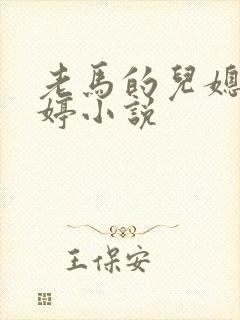 老馬的兒媳
婷小說
王保安